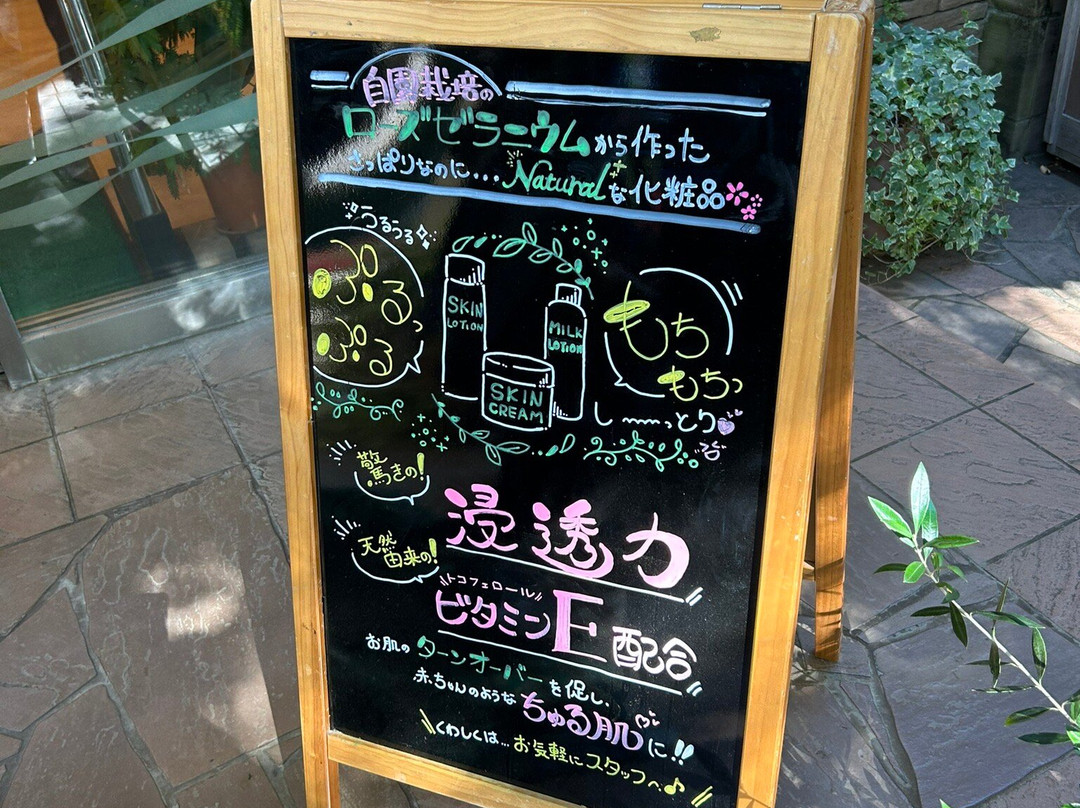 自園栽培の
ローズゼラニウムから作った
さっぱりなのに...Naturalな化粧品
うるうる
ぷる
ぷるっ
SKIN
LOTION
MILK
LOTION
SKIN
CREAM
もち
もちっ
し〜〜っとり
驚きの!
浸透力
天然
由来の!
トコフェロール
ビタミンE配合
お肌のターンオーバーを促し、
赤ちゃんのような ちゅる肌に!!
くわしくは...お気軽にスタッフへ♪